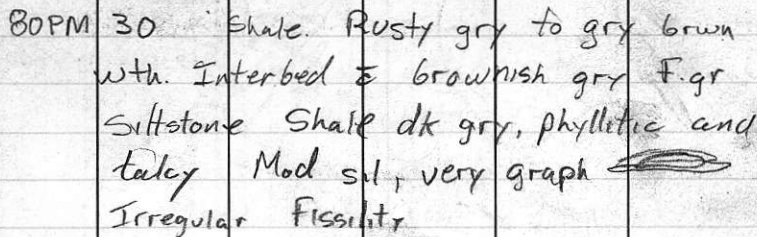 80PM 30 Shale. Rusty gry to gry brwn
wth. Interbed c̄ brownish gry F.gr
Siltstone Shale dk gry, phyllitic and
talcy Mod sil, very graph
Irregular Fissility